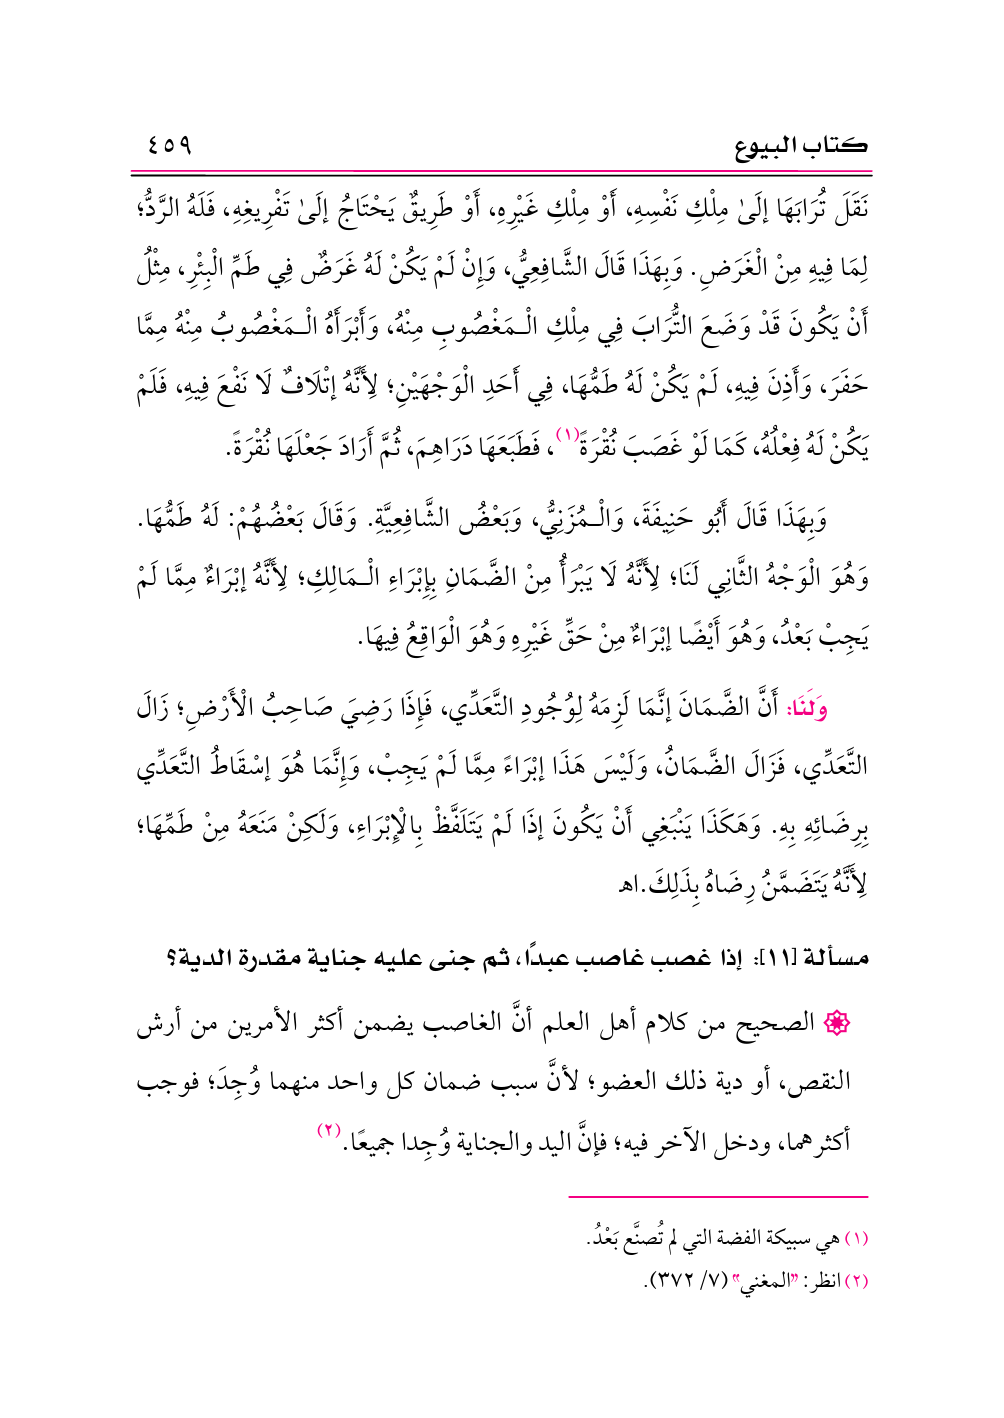 كتاب البيوع ٤٥٩
نَقَلَ تُرَابَهَا إلَىٰ مِلْكِ نَفْسِهِ، أَوْ مِلْكِ غَيْرِهِ، أَوْ طَرِيقٌ يَحْتَاجُ إلَىٰ تَفْرِيغِهِ، فَلَهُ الرَّدُّ؛
لِمَا فِيهِ مِنْ الْغَرَضِ. وَبِهَذَا قَالَ الشَّافِعِيُّ، وَإِنْ لَمْ يَكُنْ لَهُ غَرَضٌ فِي طَمِّ الْبِئْرِ، مِثْلُ
أَنْ يَكُونَ قَدْ وَضَعَ التُّرَابَ فِي مِلْكِ الْـمَغْصُوبِ مِنْهُ، وَأَبْرَأَهُ الْـمَغْصُوبُ مِنْهُ مِمَّا
حَفَرَ، وَأَذِنَ فِيهِ، لَمْ يَكُنْ لَهُ طَمُّهَا، فِي أَحَدِ الْوَجْهَيْنِ؛ لِأَنَّهُ إتْلَافٌ لَا نَفْعَ فِيهِ، فَلَمْ
يَكُنْ لَهُ فِعْلُهُ، كَمَا لَوْ غَصَبَ نُقْرَةً(١)، فَطَبَعَهَا دَرَاهِمَ، ثُمَّ أَرَادَ جَعْلَهَا نُقْرَةً.
وَبِهَذَا قَالَ أَبُو حَنِيفَةَ، وَالْـمُزَنِيُّ، وَبَعْضُ الشَّافِعِيَّةِ. وَقَالَ بَعْضُهُمْ: لَهُ طَمُّهَا.
وَهُوَ الْوَجْهُ الثَّانِي لَنَا؛ لِأَنَّهُ لَا يَبْرَأُ مِنْ الضَّمَانِ بِإِبْرَاءِ الْـمَالِكِ؛ لِأَنَّهُ إبْرَاءٌ مِمَّا لَمْ
يَجِبْ بَعْدُ، وَهُوَ أَيْضًا إبْرَاءٌ مِنْ حَقِّ غَيْرِهِ وَهُوَ الْوَاقِعُ فِيهَا.
وَلَنَا: أَنَّ الضَّمَانَ إنَّمَا لَزِمَهُ لِوُجُودِ التَّعَدِّي، فَإِذَا رَضِيَ صَاحِبُ الْأَرْضِ؛ زَالَ
التَّعَدِّي، فَزَالَ الضَّمَانُ، وَلَيْسَ هَذَا إبْرَاءً مِمَّا لَمْ يَجِبْ، وَإِنَّمَا هُوَ إسْقَاطُ التَّعَدِّي
بِرِضَائِهِ بِهِ. وَهَكَذَا يَنْبَغِي أَنْ يَكُونَ إذَا لَمْ يَتَلَفَّظْ بِالْإِبْرَاءِ، وَلَكِنْ مَنَعَهُ مِنْ طَمِّهَا؛
لِأَنَّهُ يَتَضَمَّنُ رِضَاهُ بِذَلِكَ.اهـ
مسألة [١١]: إذا غصب غاصب عبدًا، ثم جنى عليه جناية مقدرة الدية؟
الصحيح من كلام أهل العلم أنَّ الغاصب يضمن أكثر الأمرين من أرش
النقص، أو دية ذلك العضو؛ لأنَّ سبب ضمان كل واحد منهما وُجِدَ؛ فوجب
أكثرهما، ودخل الآخر فيه؛ فإنَّ اليد والجناية وُجِدا جميعًا.(٢)
(١) هي سبيكة الفضة التي لم تُصنَّع بَعْدُ.
(٢) انظر: "المغني" (٧/ ٣٧٢).